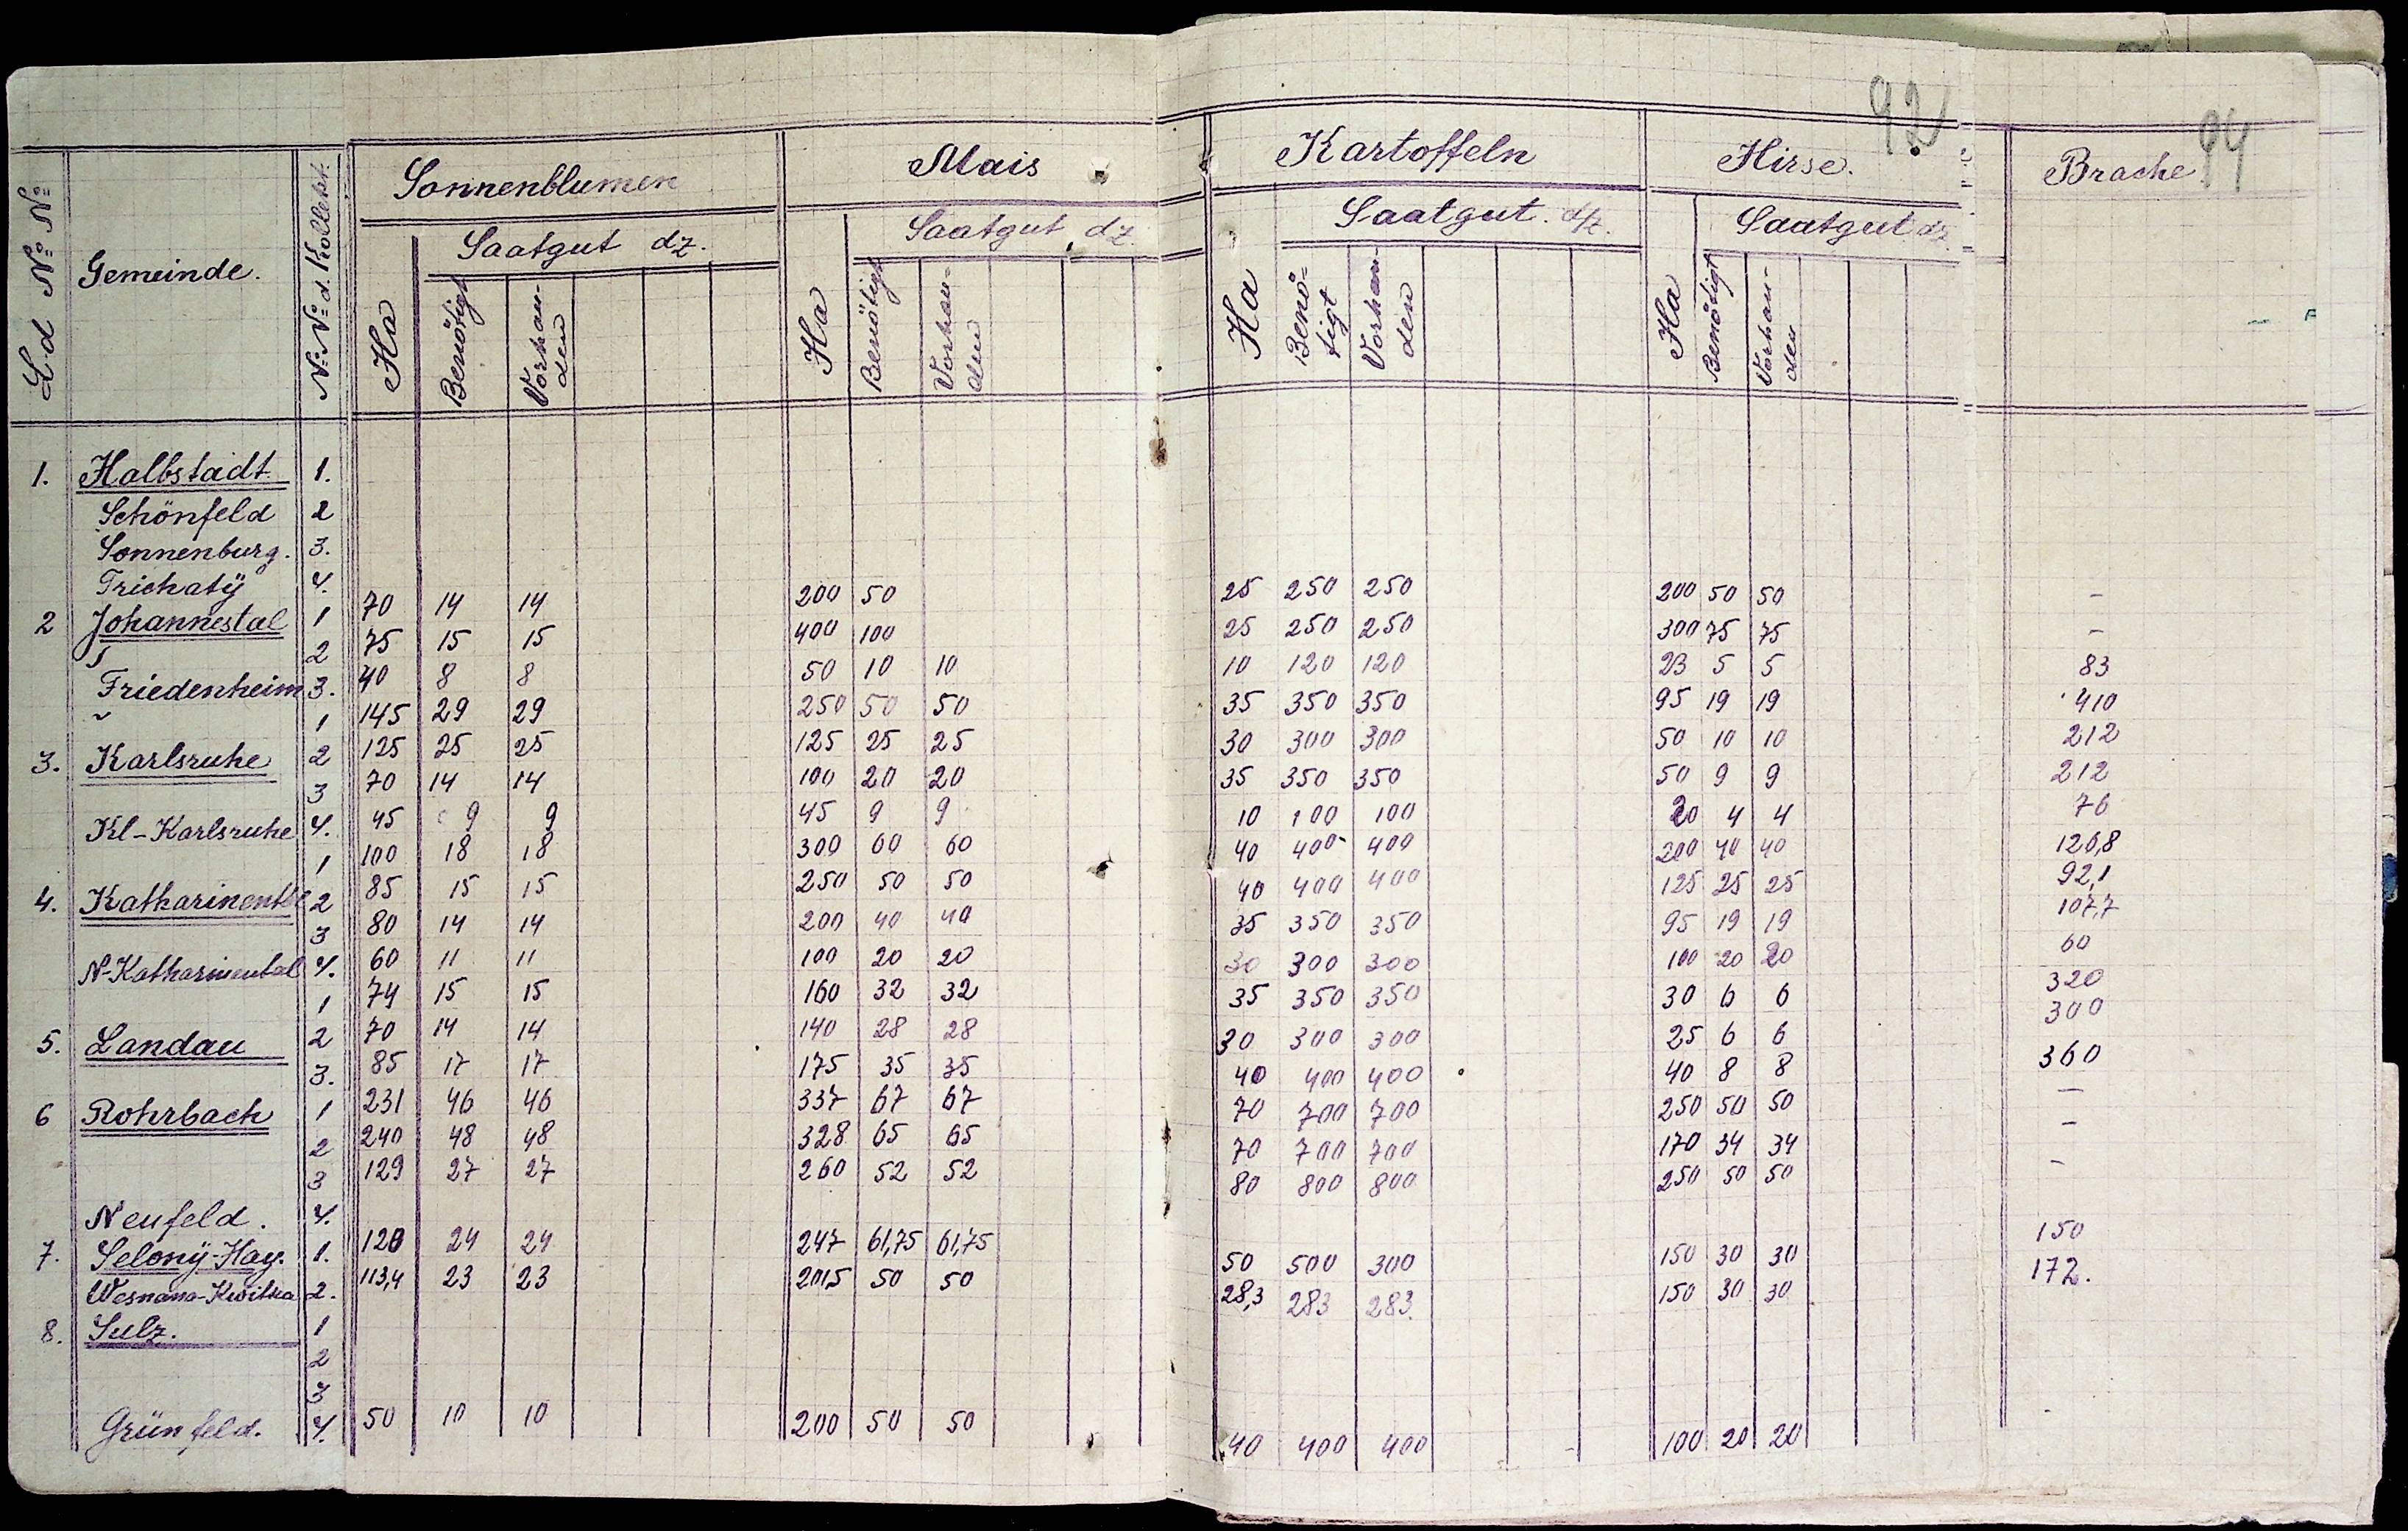 92
94
Ld №№ Gemeinde. №№ d. Kollekt. Sonnenblumen Mais Kartoffeln Hirse. Brache
Saatgut dz. Saatgut dz. Saatgut dz. Saatgut dz
Ha Benötigt Vorhan-den Ha Benötigt Vorhan-den Ha Benö-tigt Vorhan-den Ha Benötigt Vorhan-den
1. Halbstadt 1.
Schönfeld 2
Sonnenburg. 3.
Trichatÿ 4.
70 14 14 200 50 25 250 250 200 50 50 –
2 Johannestal 1
75 15 15 400 100 25 250 250 300 75 75 –
2
40 8 8 50 10 10 10 120 120 23 5 5 83
Friedenheim 3.
145 29 29 250 50 50 35 350 350 95 19 19 410
1
125 25 25 125 25 25 30 300 300 50 10 10 212
3. Karlsruhe 2
70 14 14 100 20 20 35 350 350 50 9 9 212
3
45 9 9 45 9 9 10 100 100 20 4 4 76
Kl-Karlsruhe 4.
100 18 18 300 60 60 40 400 400 200 40 40 126,8
1
85 15 15 250 50 50 40 400 400 125 25 25 92,1
4. Katharinental 2
80 14 14 200 40 40 35 350 350 95 19 19 107,7
3
60 11 11 100 20 20 30 300 300 100 20 20 60
N-Katharinental 4.
74 15 15 160 32 32 35 350 350 30 6 6 320
1
70 14 14 140 28 28 30 300 300 25 6 6 300
5. Landau 2
85 17 17 175 35 35 40 400 400 40 8 8 360
3.
231 46 46 337 67 67 70 700 700 250 50 50 –
6 Rohrbach 1
240 48 48 328 65 65 70 700 700 170 34 34 –
2
129 27 27 260 52 52 80 800 800 250 50 50 –
3
Neufeld. 4.
120 24 24 247 61,75 61,75 50 500 300 150 30 30 150
7. Selonÿ-Hay. 1.
113,4 23 23 201,5 50 50 28,3 283 283 150 30 30 172.
Wesnana-Kwitka 2.
8. Sulz. 1
2
3
50 10 10 200 50 50 40 400 400 100 20 20
Grünfeld. 4.